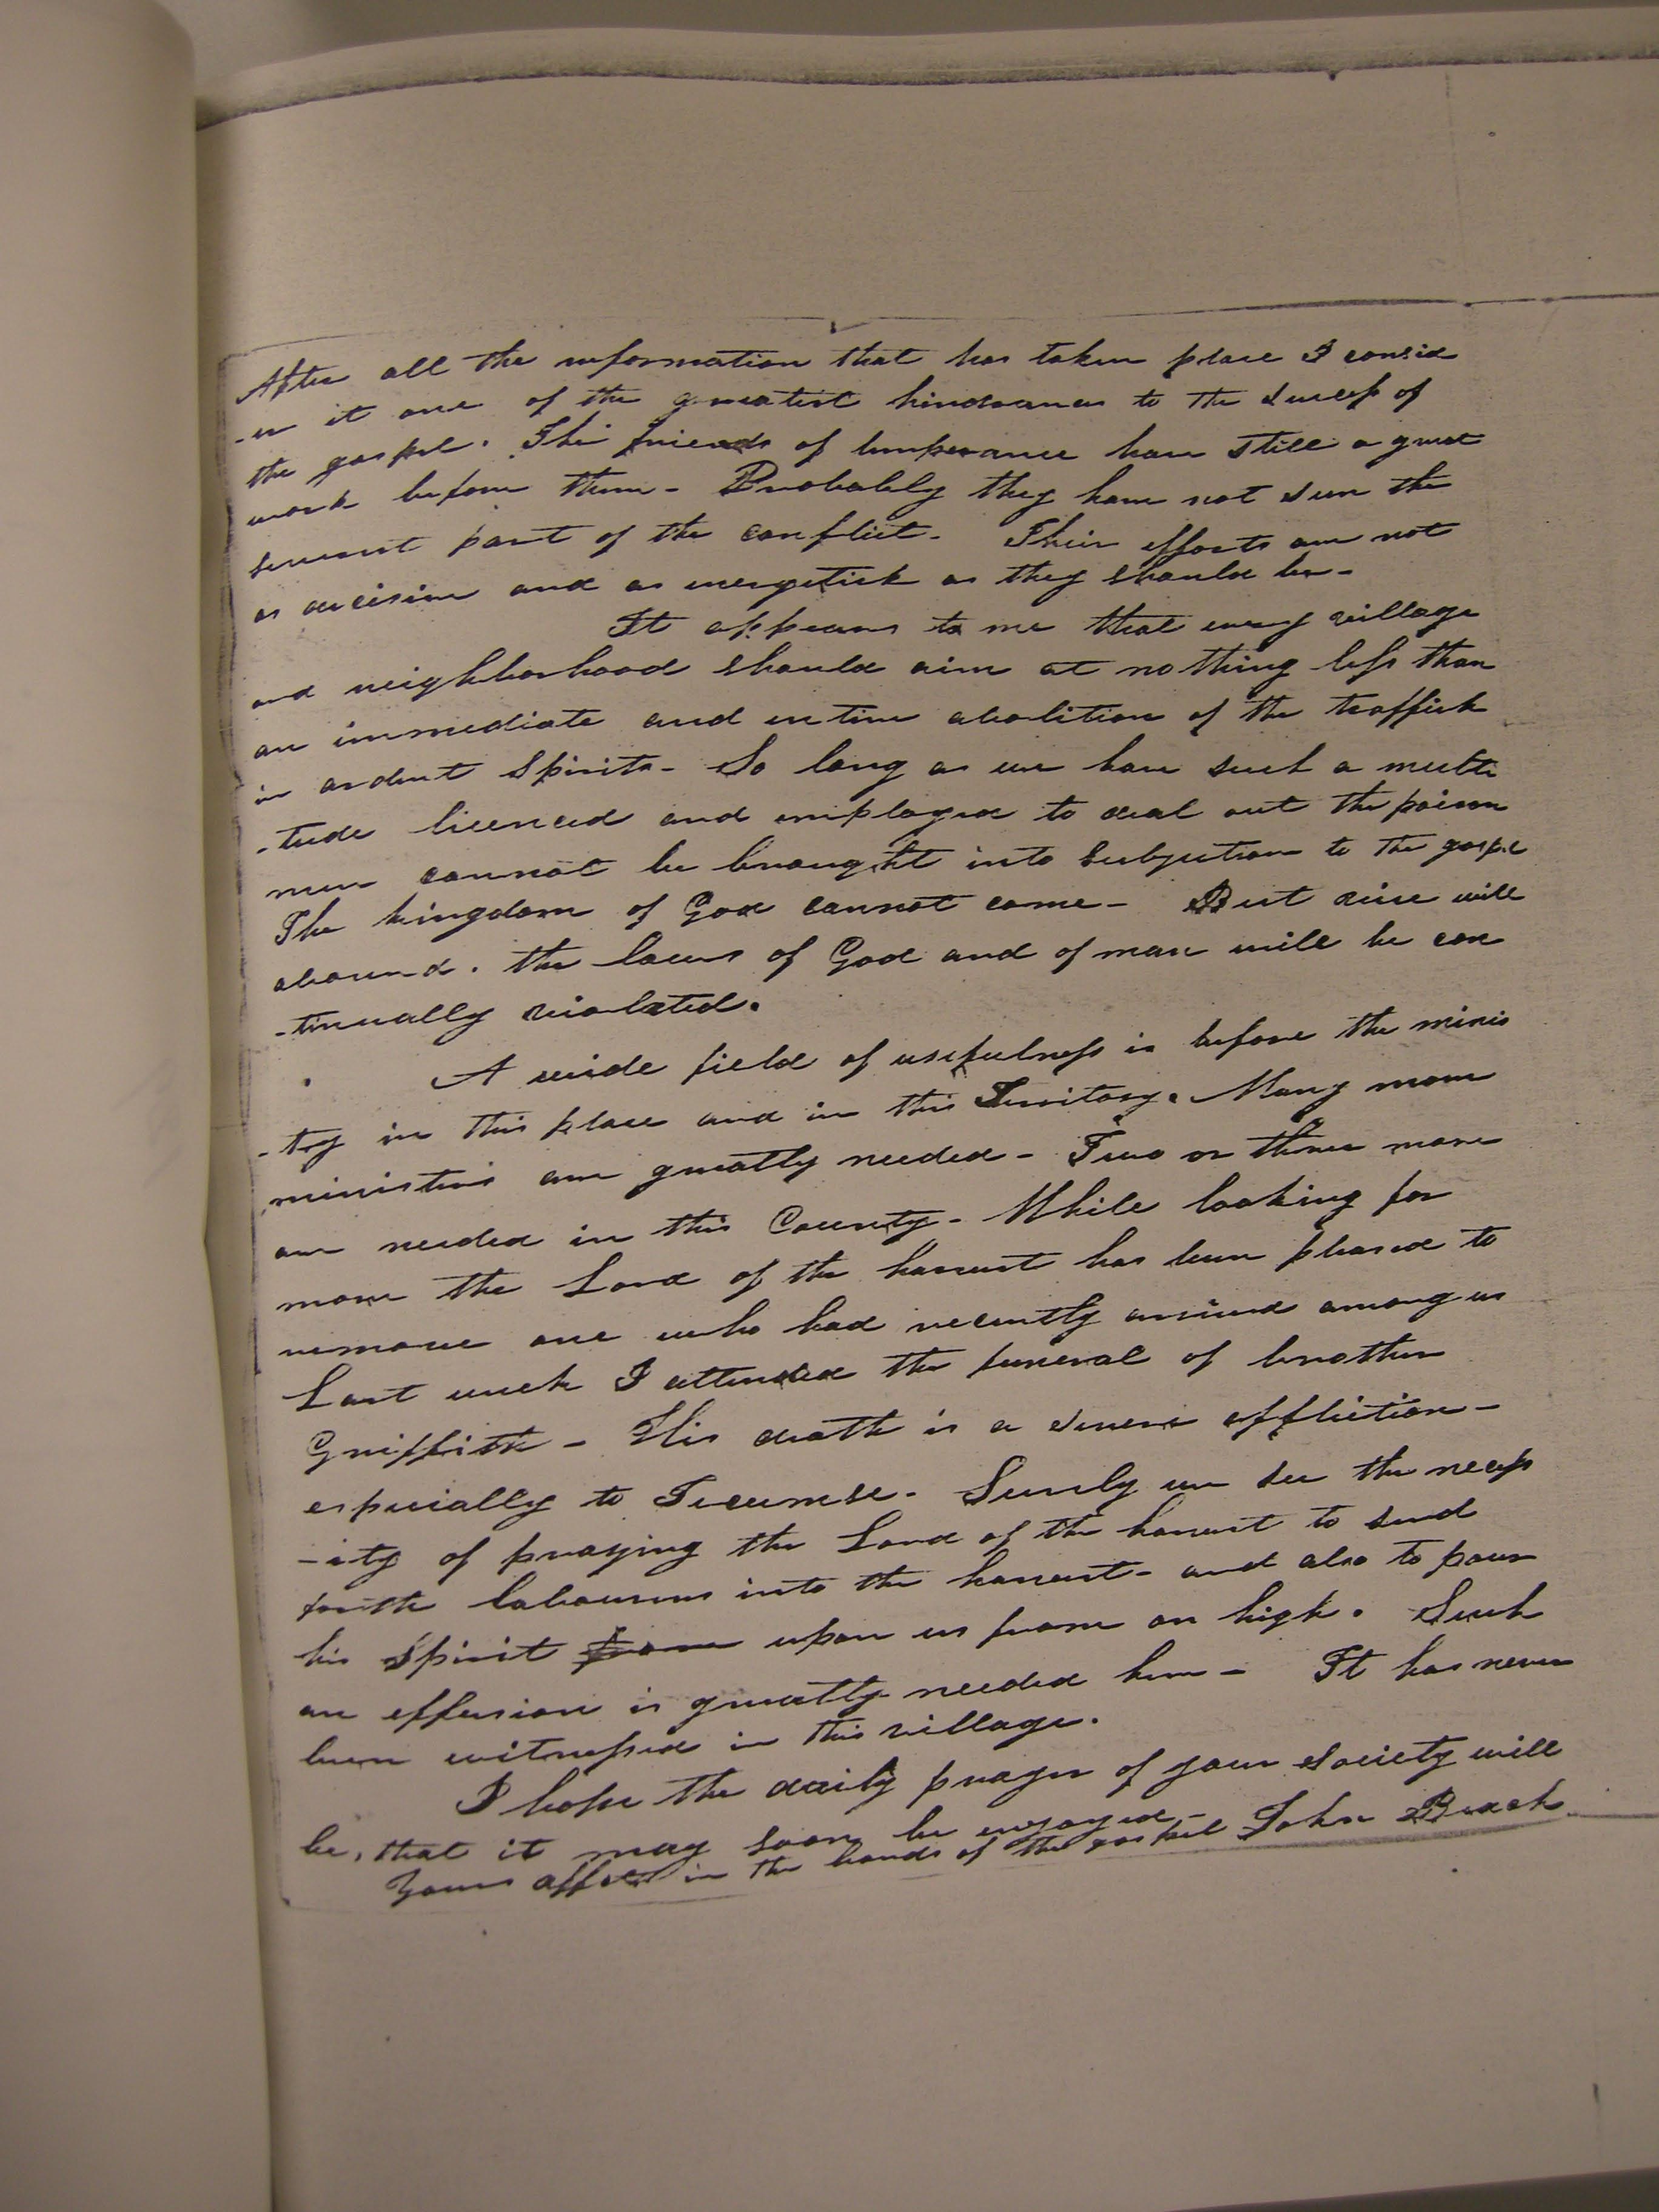 After all the reformation that has taken place I consid
-er it one of the greatest hindrances to the sweep of
the gospel. The friends of temperance have still a great
work before them - Probably they have not seen the
severest part of the conflict. Their efforts are not
as decisive and as energetick as they should be -
It appears to me that every village
and neighborhood should aim at nothing less than
an immediate and entire abolition of the traffick
in ardent Spirits - So long as we have such a multi
-tude licenced and employed to deal out the poison
men cannot be brought into subjection to the gospel
The kingdom of God cannot come - But vice will
abound. the laws of God and of man will be con
-tinually violated.
A wide field of usefulness is before the minis
-try in this place and in this Territory. Many more
ministers are greatly needed - Two or three more
are needed in this County - While looking for
more the Lord of the harvest has been pleased to
remove one who had recently arrived among us
Last week I attended the funeral of brother
Griffith - His death is a severe affliction -
especially to Tecumse. Surely we see the necess
-ity of praying the Lord of the harvest to send
forth labourers into the harvest - and also to pour
his Spirit from upon us from on high. Such
an effusion is greatly needed here - It has never
been witnessed in this village.
I hope the daily prayer of your Society will
be, that it may soon be enjoyed -
Yours affect in the bonds of the gospel John Beach